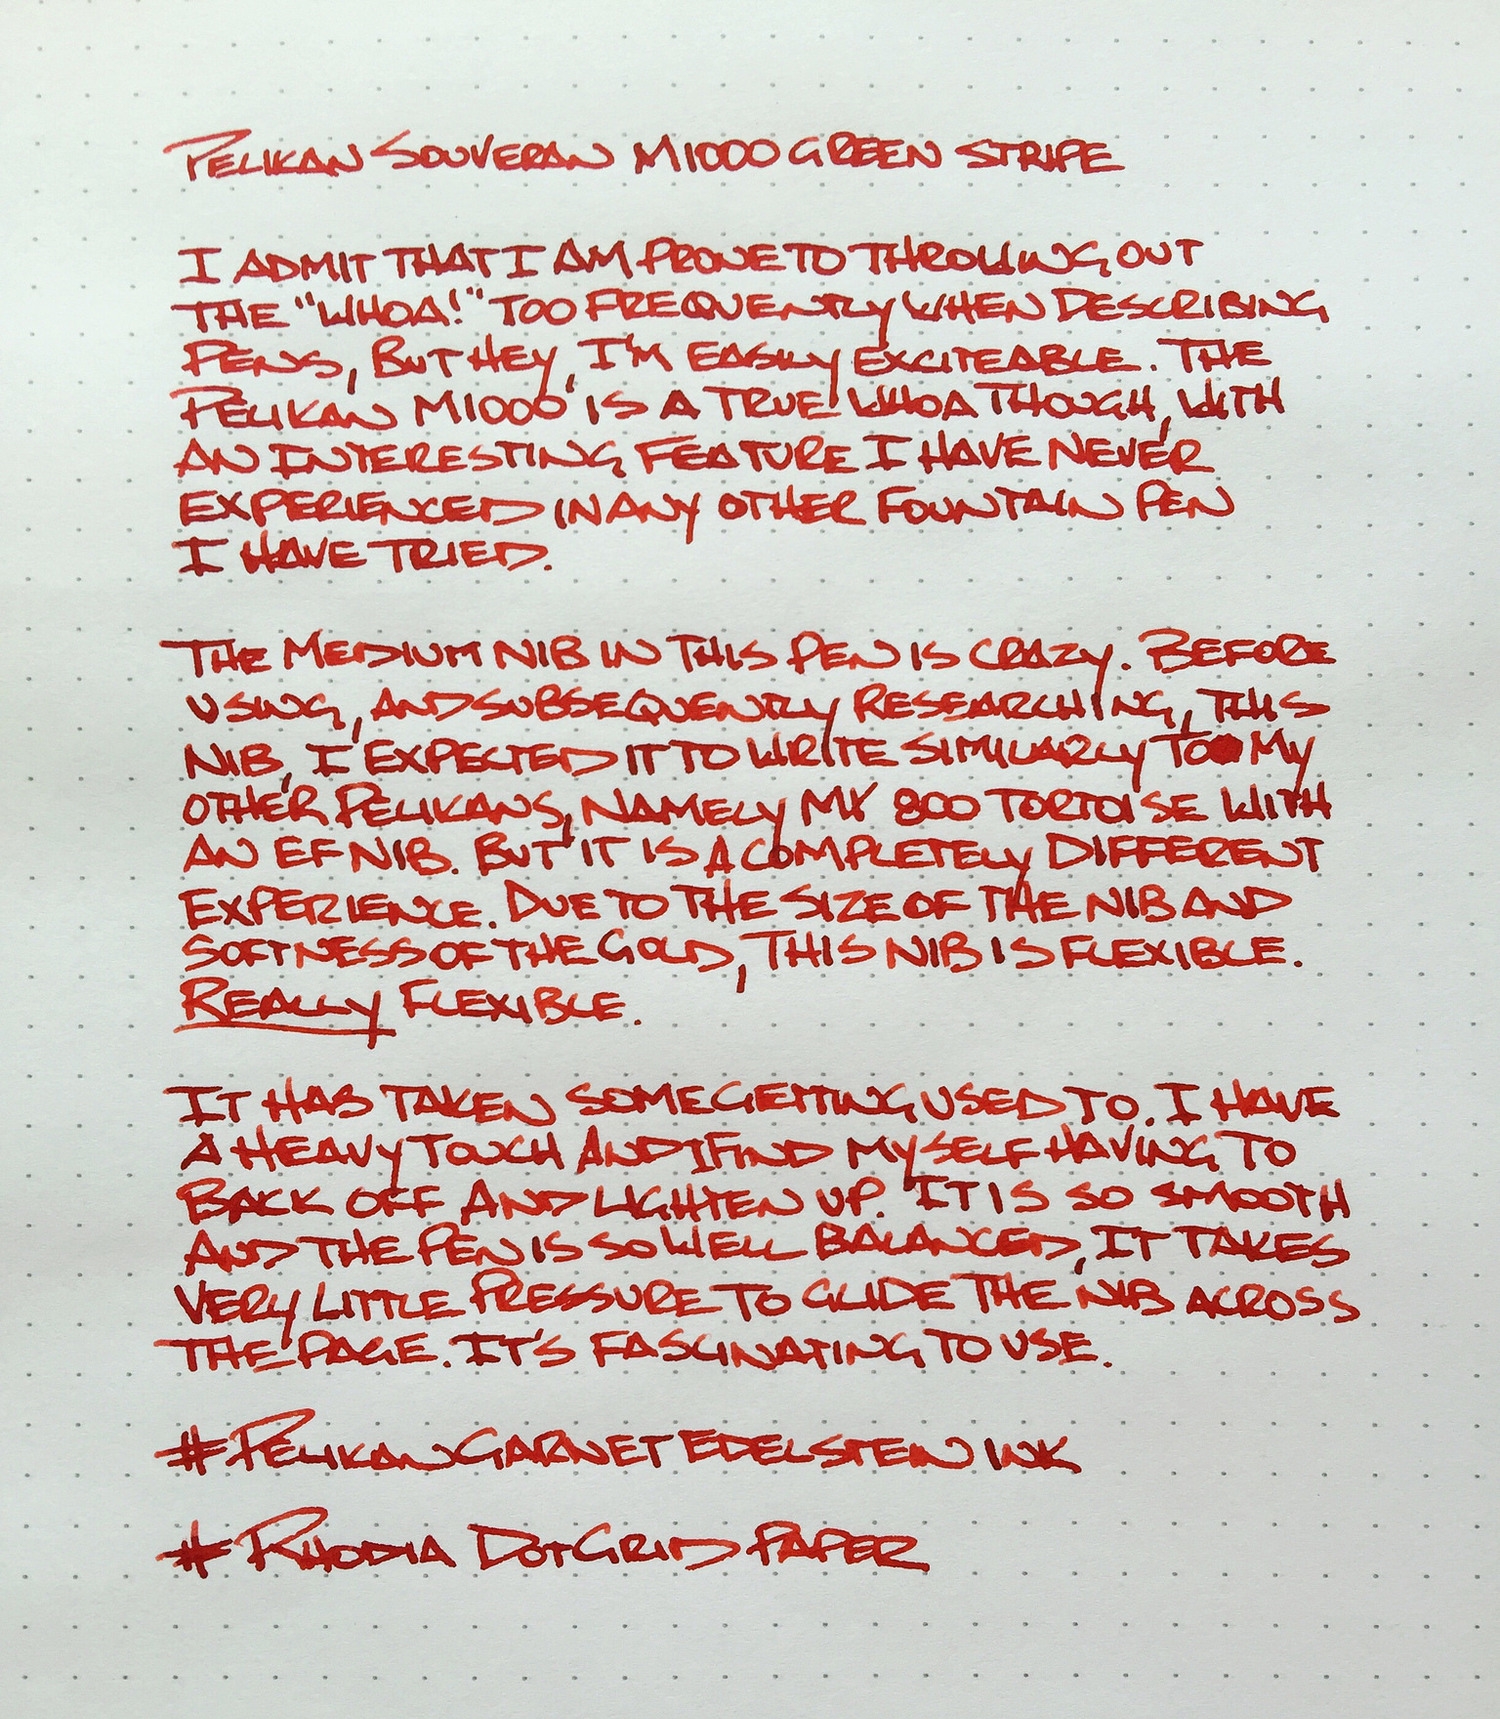 PELIKAN SOUVERAN M1000 GREEN STRIPE
I ADMIT THAT I AM PRONE TO THROWING OUT
THE "WHOA!" TOO FREQUENTLY WHEN DESCRIBING
PENS, BUT HEY, I'M EASILY EXCITEABLE. THE
PELIKAN M1000 IS A TRUE WHOA THOUGH, WITH
AN INTERESTING FEATURE I HAVE NEVER
EXPERIENCED IN ANY OTHER FOUNTAIN PEN
I HAVE TRIED.
THE MEDIUM NIB IN THIS PEN IS CRAZY. BEFORE
USING, AND SUBSEQUENTLY RESEARCHING, THIS
NIB, I EXPECTED IT TO WRITE SIMILARLY TO MY
OTHER PELIKANS, NAMELY MY 800 TORTOISE WITH
AN EF NIB. BUT IT IS A COMPLETELY DIFFERENT
EXPERIENCE. DUE TO THE SIZE OF THE NIB AND
SOFTNESS OF THE GOLD, THIS NIB IS FLEXIBLE.
REALLY FLEXIBLE.
IT HAS TAKEN SOME GETTING USED TO. I HAVE
A HEAVY TOUCH AND I FIND MYSELF HAVING TO
BACK OFF AND LIGHTEN UP. IT IS SO SMOOTH
AND THE PEN IS SO WELL BALANCED, IT TAKES
VERY LITTLE PRESSURE TO GLIDE THE NIB ACROSS
THE PAGE. IT'S FASCINATING TO USE.
#PELIKAN GARNET EDELSTEIN INK
#RHODIA DOTGRID PAPER